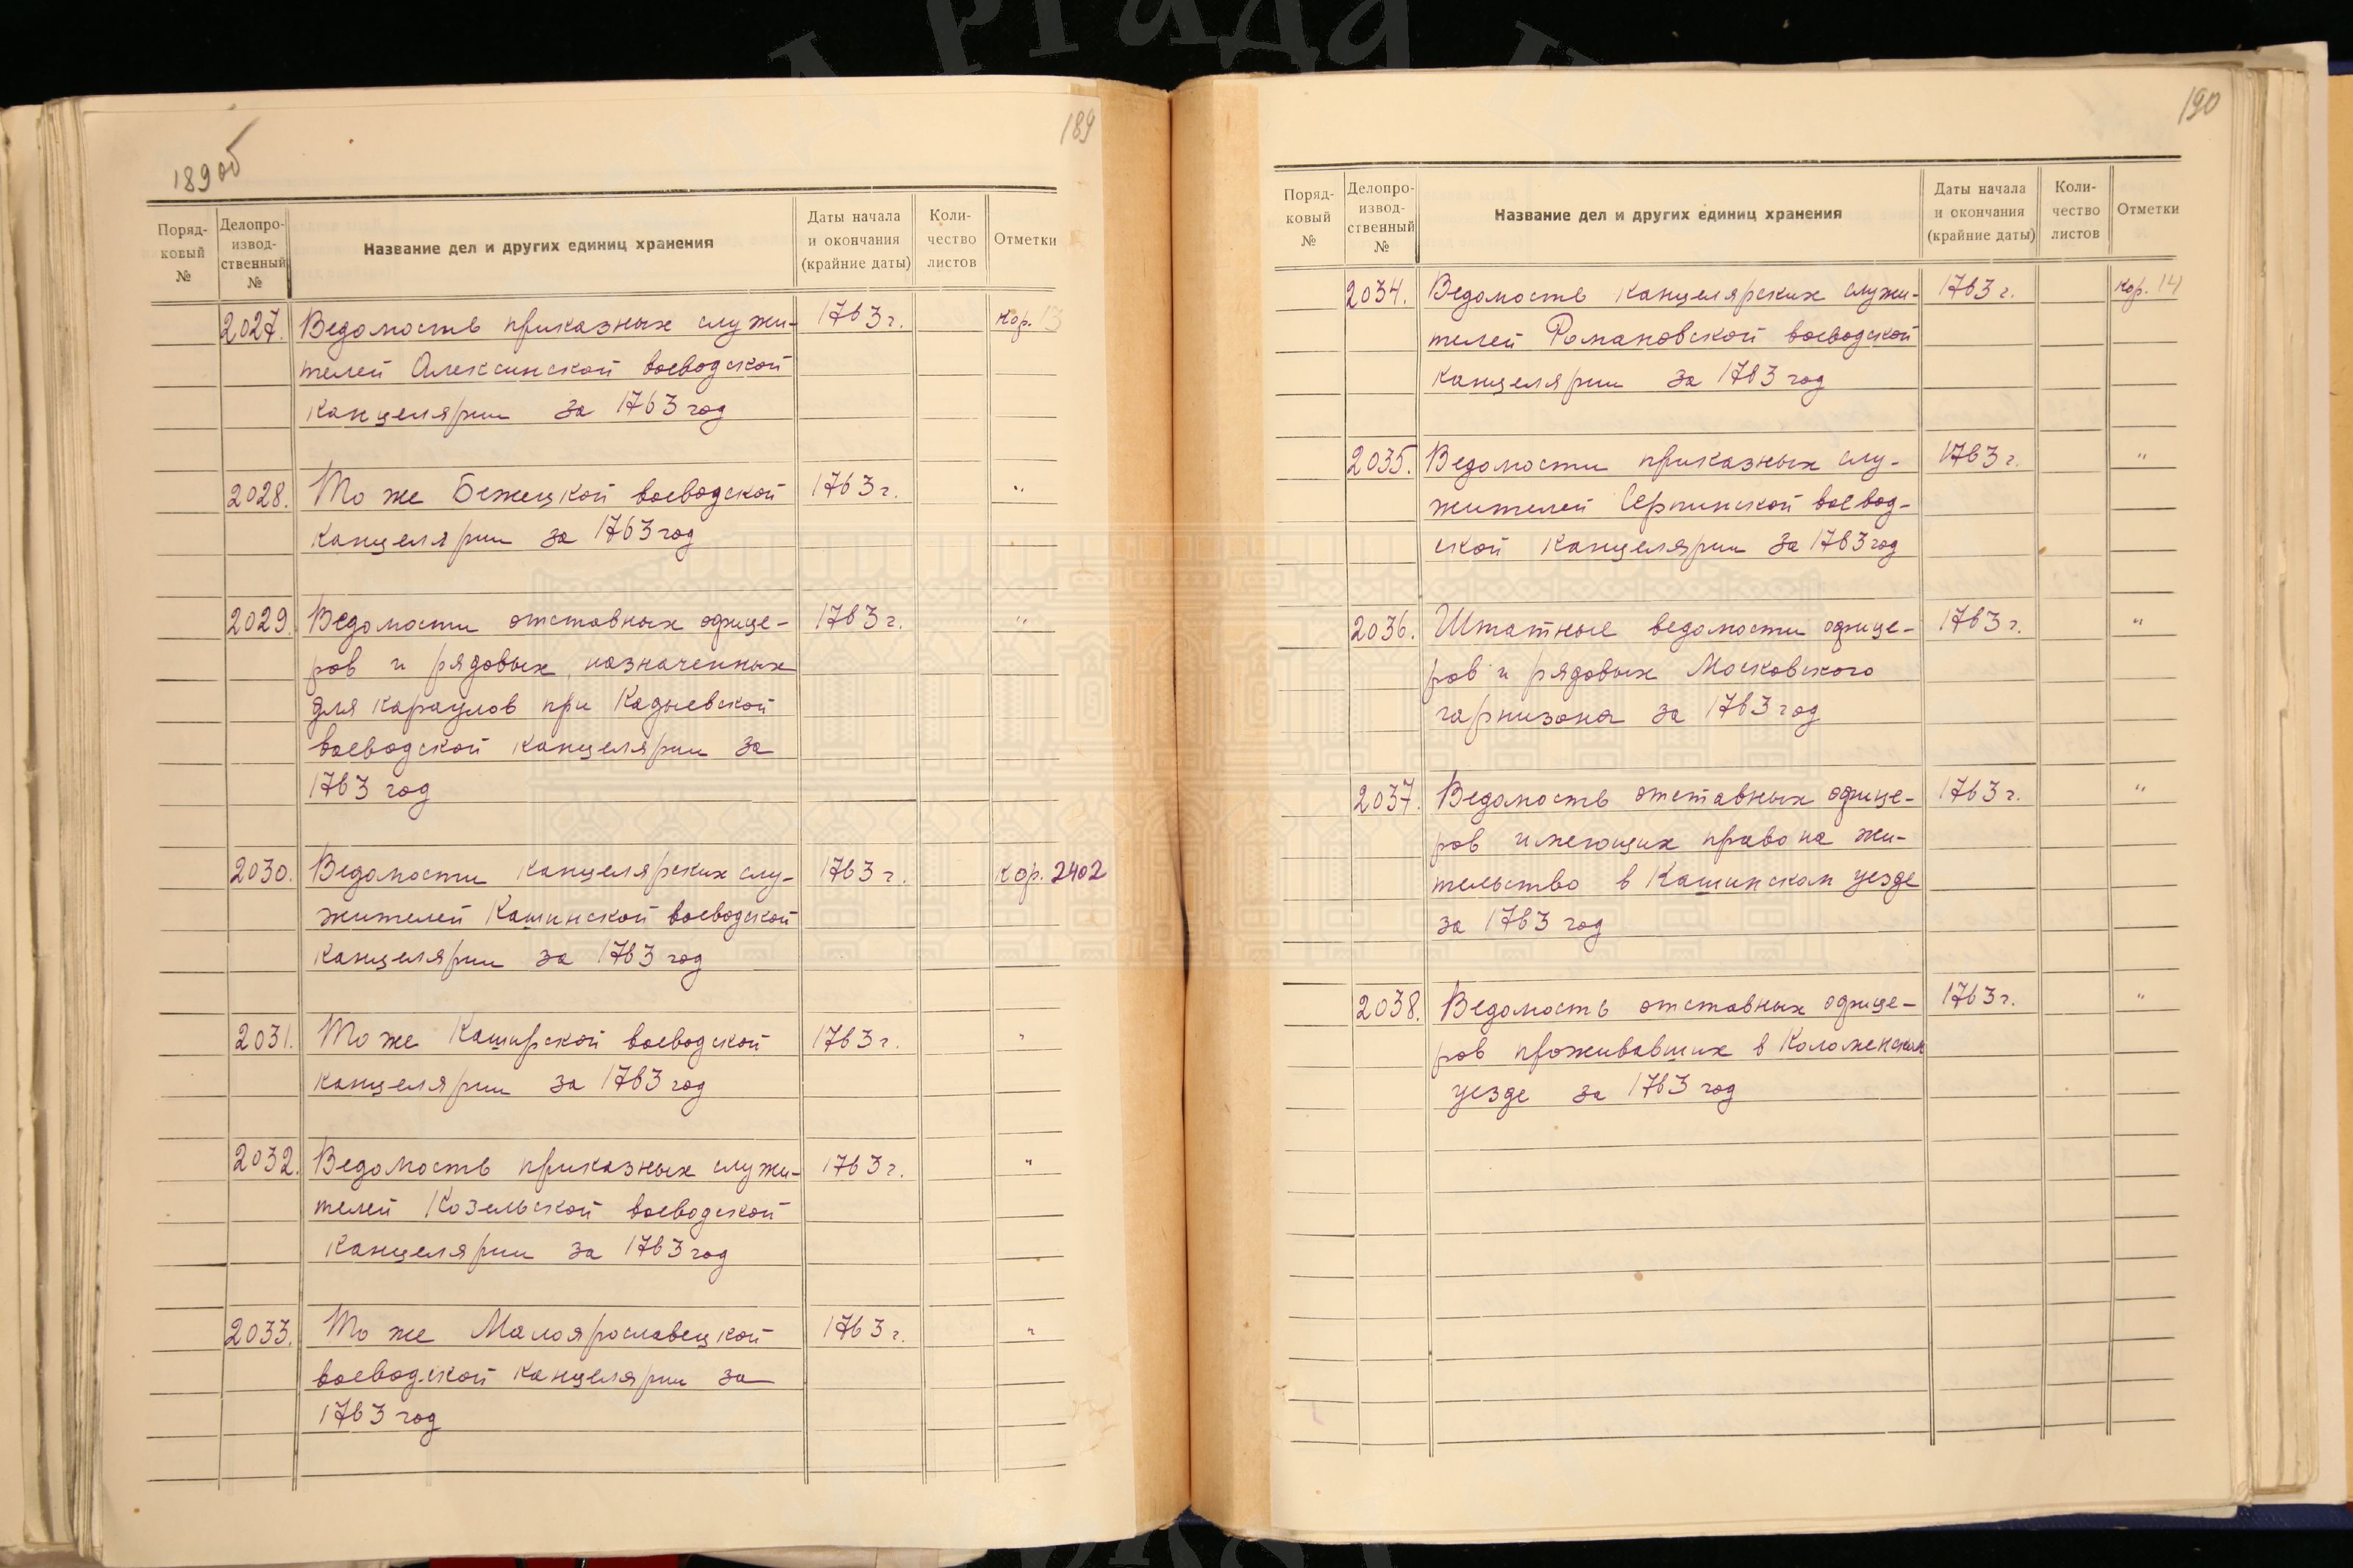 189об
189
Поряд-
ковый
№
Делопро-
извод-
ственный
№
Название дел и других единиц хранения
Даты начала
и окончания
(крайние даты)
Коли-
чество
листов
Отметки
2027. Ведомость приказных служи- 1763 г. кор. 13
телей Алексинской воеводской
канцелярии за 1763 год
2028. То же Бежецкой воеводской 1763 г. "
канцелярии за 1763 год
2029. Ведомости отставных офице- 1763 г. "
ров и рядовых, назначенных
для караулов при Кадыевской
воеводской канцелярии за
1763 год
2030. Ведомости канцелярских слу- 1763 г. кор. 2402
жителей Кашинской воеводской
канцелярии за 1763 год
2031. То же Каширской воеводской 1763 г. "
канцелярии за 1763 год
2032. Ведомость приказных служи- 1763 г. "
телей Козельской воеводской
канцелярии за 1763 год
2033. То же Малоярославецкой 1763 г. "
воеводской канцелярии за
1763 год
190
Поряд-
ковый
№
Делопро-
извод-
ственный
№
Название дел и других единиц хранения
Даты начала
и окончания
(крайние даты)
Коли-
чество
листов
Отметки
2034. Ведомость канцелярских служи- 1763 г. кор. 14
телей Романовской воеводской
канцелярии за 1763 год
2035. Ведомости приказных слу- 1763 г. "
жителей Серпинской воевод-
ской канцелярии за 1763 год
2036. Штатные ведомости офице- 1763 г. "
ров и рядовых Московского
гарнизона за 1763 год
2037. Ведомость отставных офице- 1763 г. "
ров имеющих право на жи-
тельство в Кашинском уезде
за 1763 год
2038. Ведомость отставных офице- 1763 г. "
ров проживавших в Коломенском
уезде за 1763 год